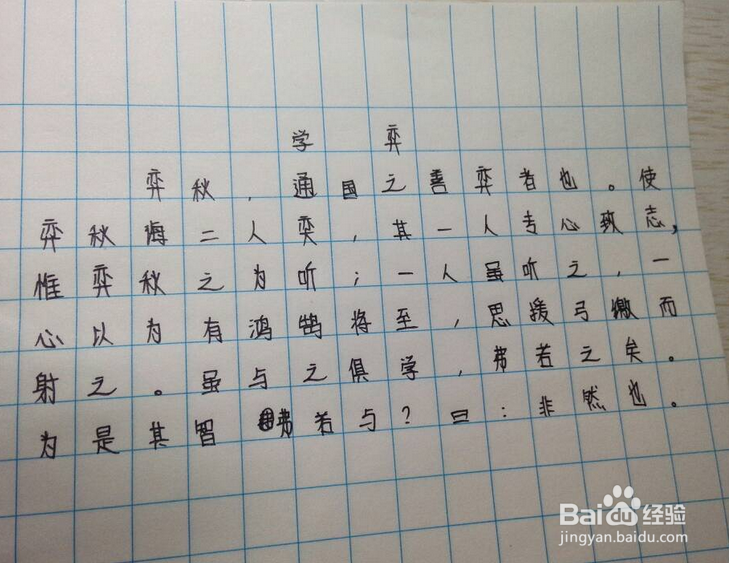 学 弈
弈秋，通国之善弈者也。使
弈秋悔二人奕，其一人专心致志，
惟弈秋之为听；一人虽听之，一
心以为有鸿鹄将至，思援弓缴而
射之。虽与之俱学，弗若之矣。
为是其智弗若与？曰：非然也。
Baidu经验
jingyan.baidu.com